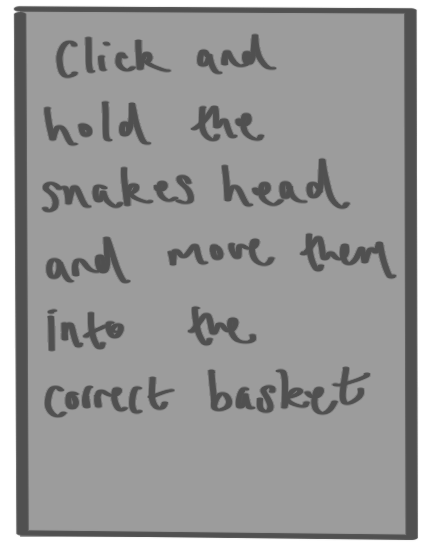 Click and
hold the
snakes head
and move them
into the
correct basket